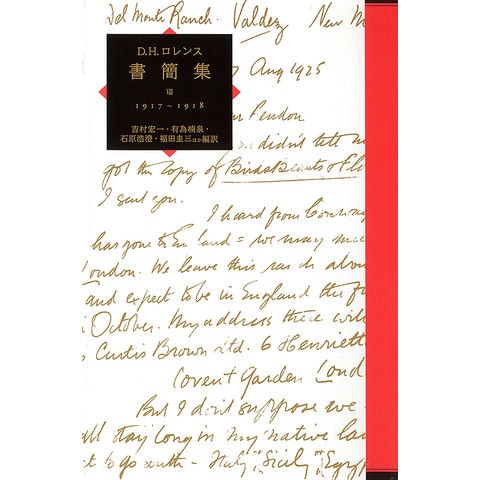 Del Monte Ranch. Valdez New M
7 Aug 1925
D.H.ロレンス
書簡集
Ⅷ
1917~1918
吉村宏一・有為楠泉・
石原浩澄・福田圭三ほか編訳
Pendon
didn't tell me
got the copy of Birds Beasts & Flo
I sent you.
I heard from Conway
has gone to England = we may mee
London. We leave this ranch abou
and expect to be in England the fi
October. My address there will
Curtis Brown Ltd. 6 Henriett
Covent Garden Lond
But I don't suppose we
all stay long in my native lan
t to go south - Italy or Sicily or Egyp